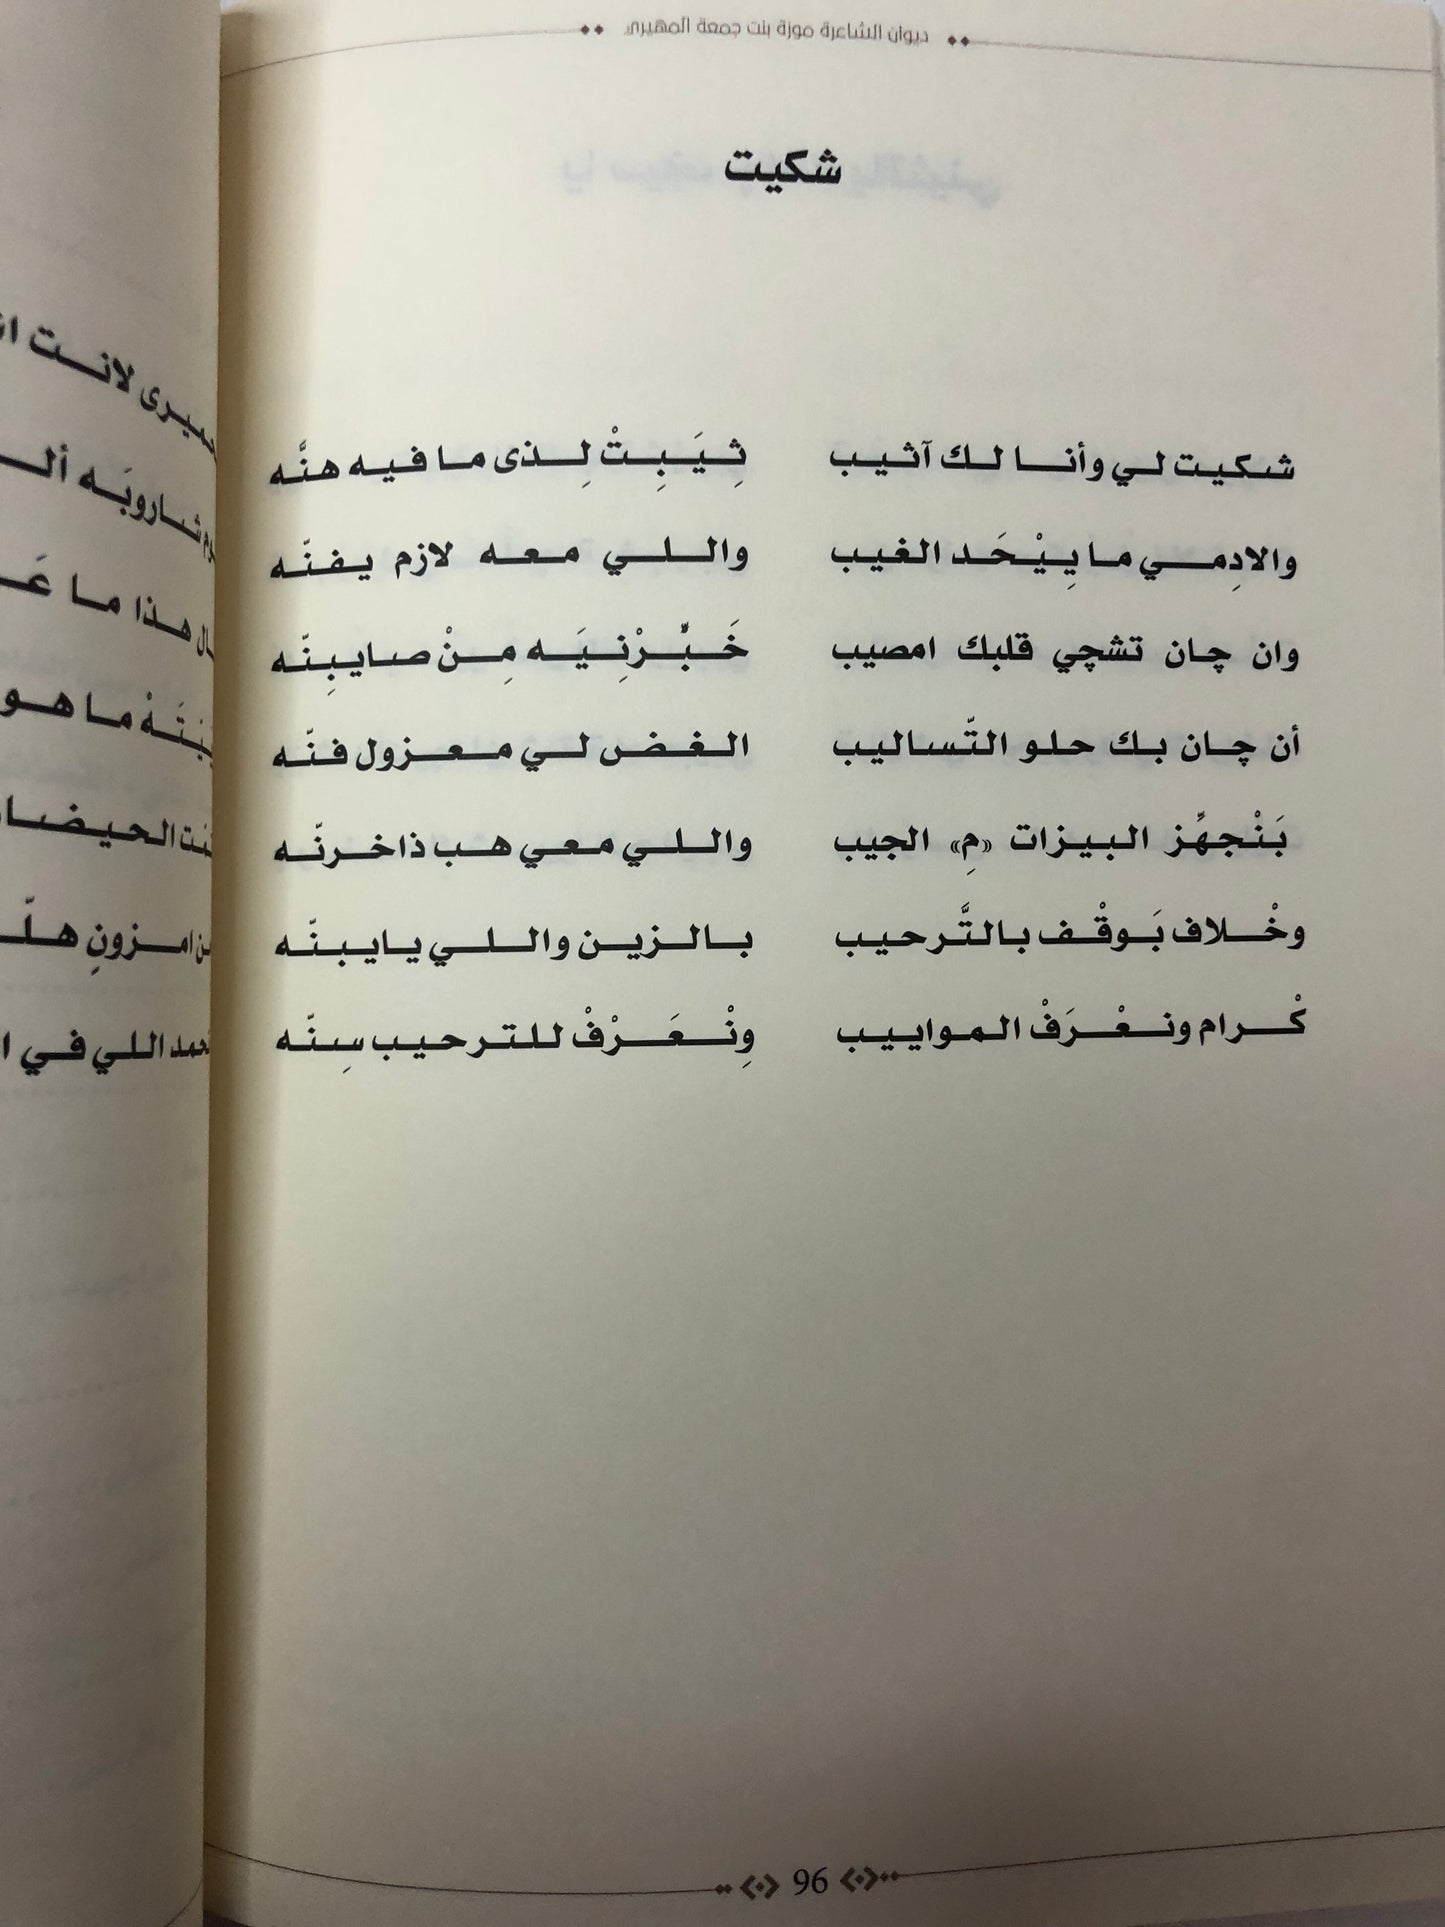 ديوان الشاعرة موزة بنت جمعة المهيري
شكيت
شكيت لي وأنا لك آثيب ثِيَبِتْ لِذى ما فيه هنَّه
والادِمي ما يِيْحَد الغيب واللي معه لازم يفنّه
وان چان تشچي قلبك امصيب خَبِّرْنِيَه مِنْ صايبِنّه
أن چان بك حلو التّساليب الغض لي معزول فنّه
بَنْجهِّز البيزات «مِ» الجيب واللي معي هب ذاخرنّه
وخْلاف بَوقْف بالتَّرحيب بالزين واللي يايبنّه
كْرام ونعْرَفْ المواييب ونِْعَرْفْ للترحيب سِنّه
96
لانت
شاروبَه
هذا ما
ما هو
امزونِ
اللي في